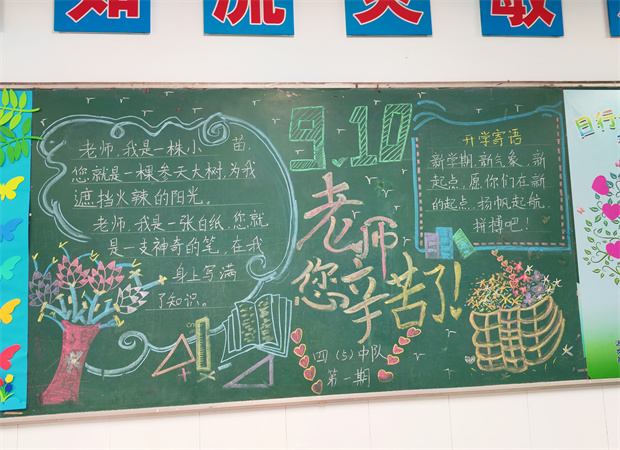 如 流 灵 敏
9.10
老师,我是一株小 苗,
您就是一棵参天大树,为我
遮挡火辣的阳光。
老师,我是一张白纸,您就
是一支神奇的笔,在我
身上写满
了知识。
老师
您辛苦了!
四(5)中队
第一期
开学寄语
新学期,新气象,新
起点,愿你们在新
的起点,扬帆起航,
拼搏吧!
日行